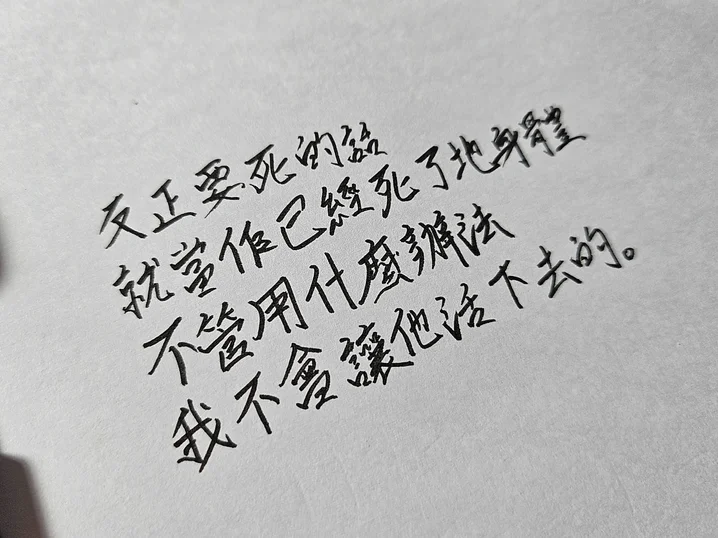 反正要死的話
就當作已經死了地身體
不管用什麼辦法
我不會讓他活下去的。